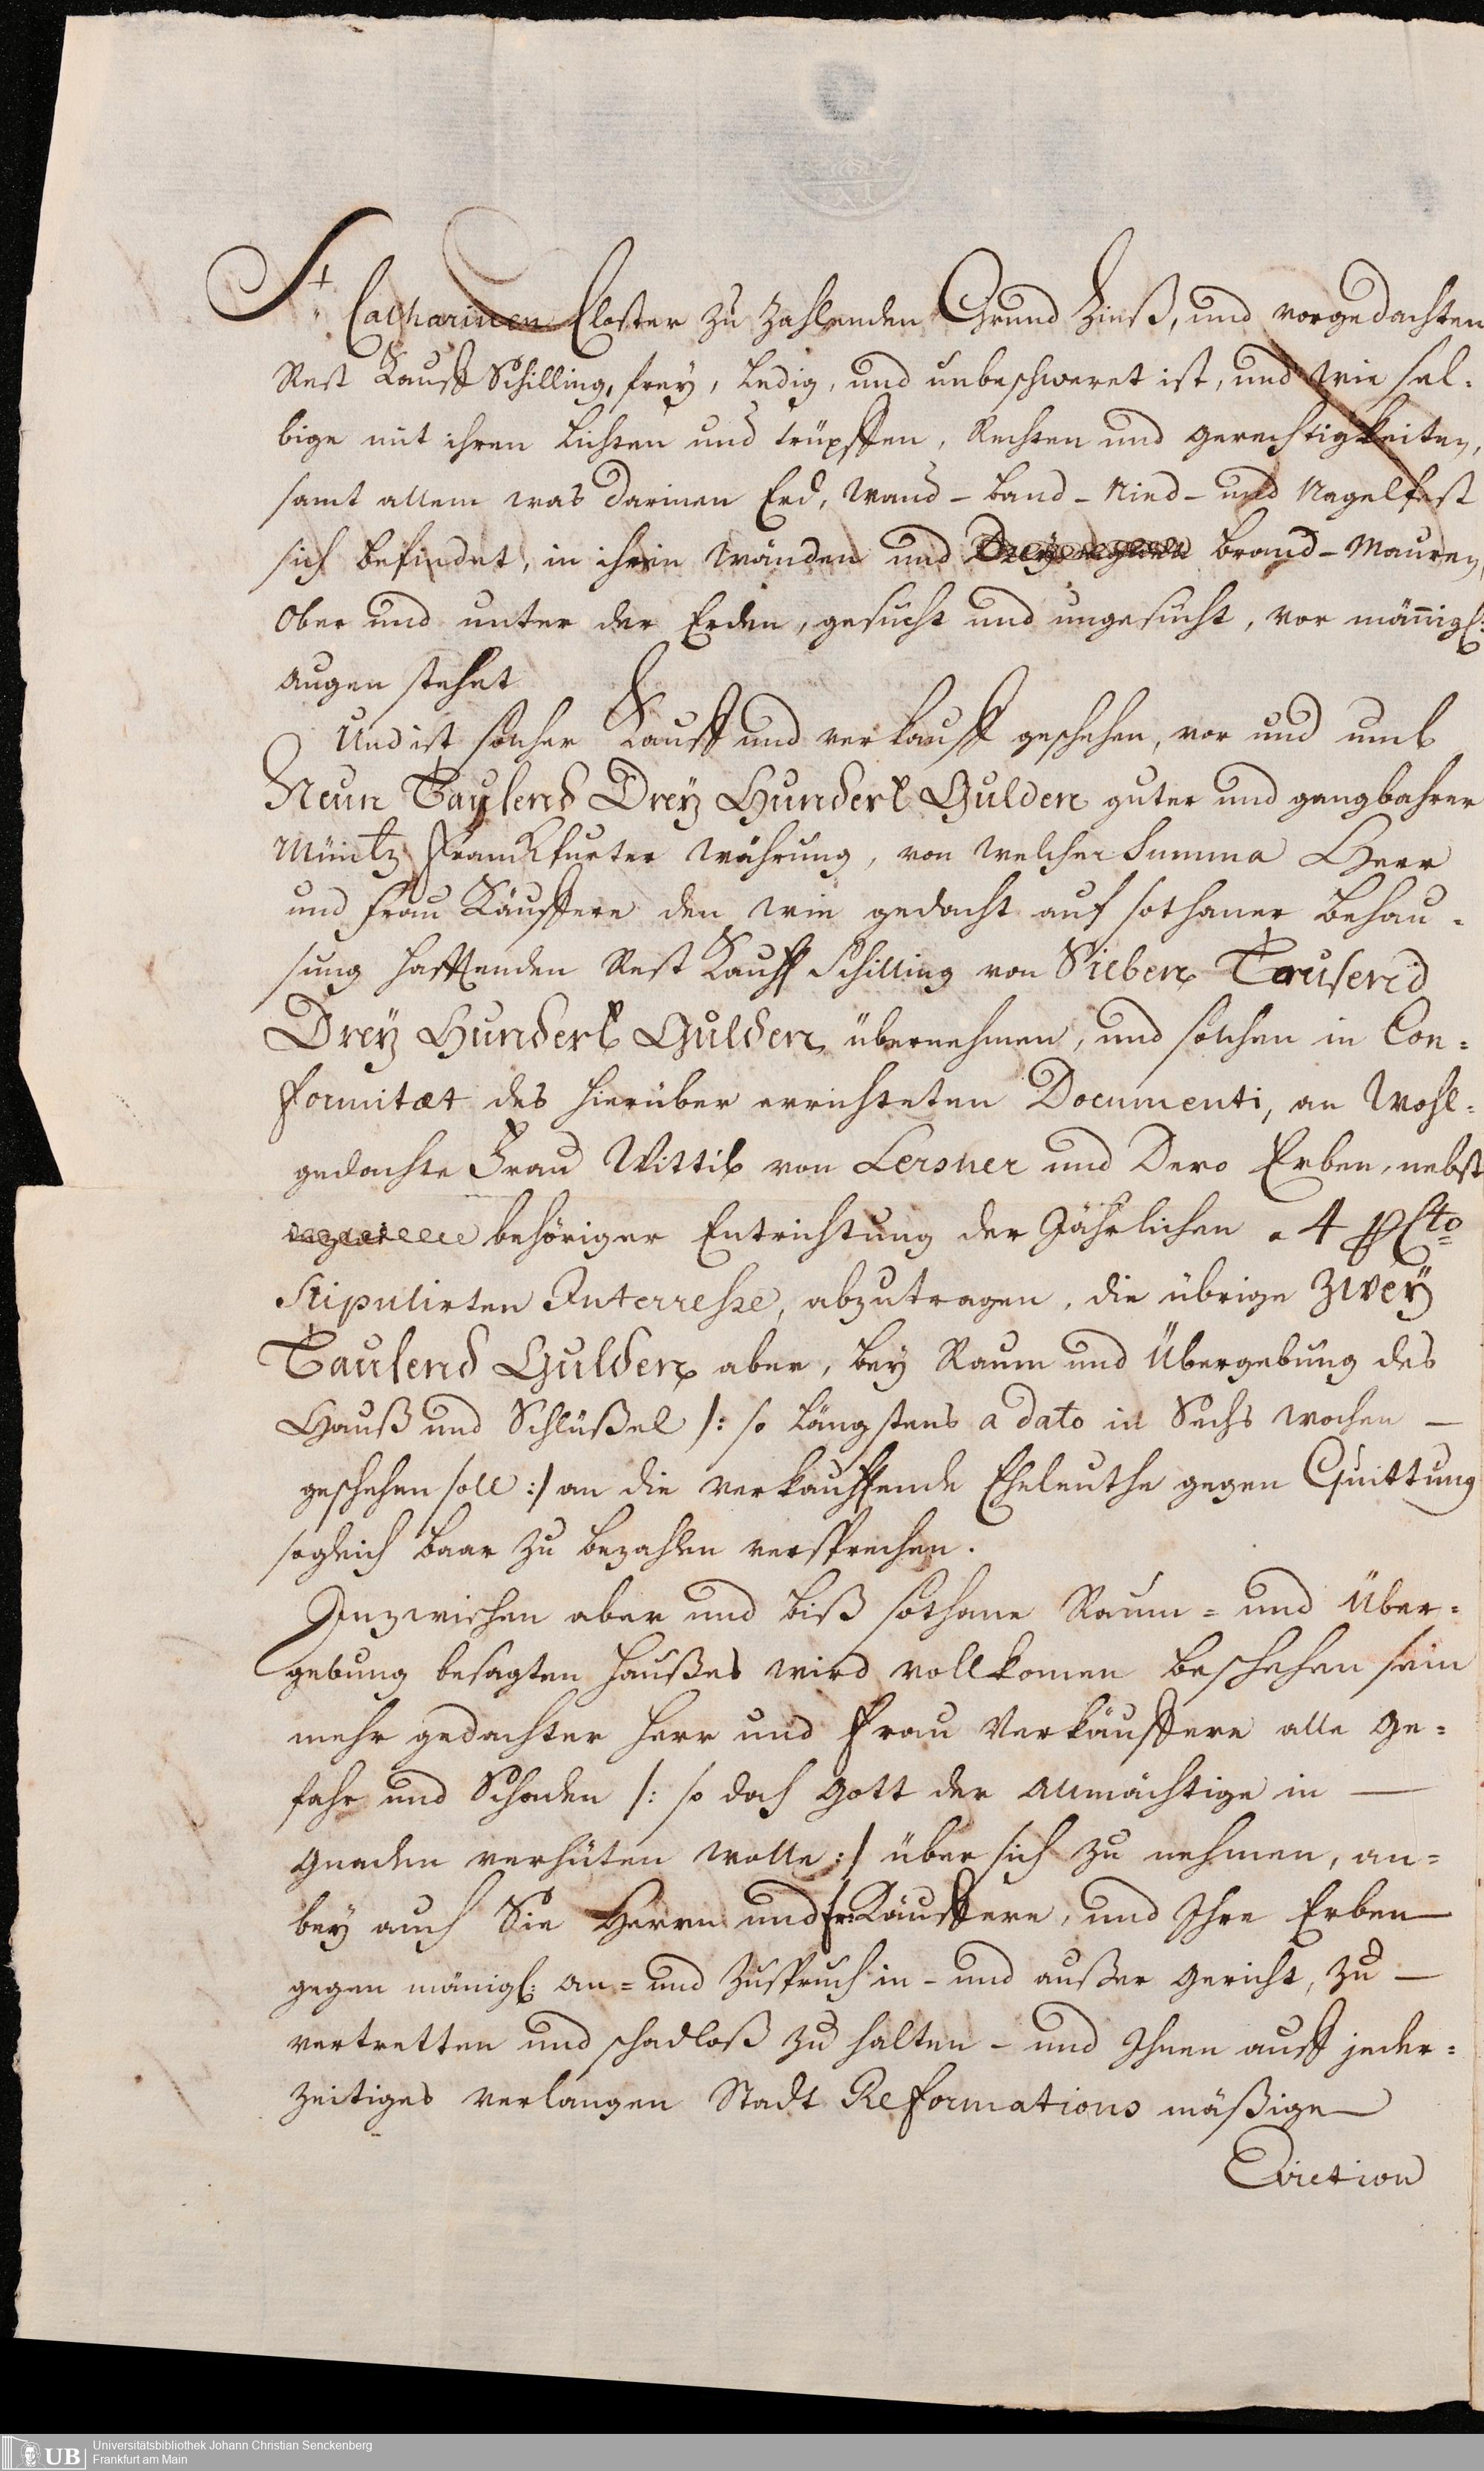 St. Catharinen Closter zu zahlenden Grund Zinß, und vorgedachten
Rest Kauff Schilling, frey, ledig, und unbeschweret ist, und wie sel=
bige mit ihren Lichten und trüpffen, Rechten und gerechtigkeiten,
samt allem was darinen Erd, wand- band- Nied- und Nagelfest
sich befindet, in ihren wänden und brand-Mauren,
Ober und unter der Erden, gesucht und ungesucht, vor männigl:
augen stehet
Und ist solcher Kauff und verkauff geschehen, vor und umb
Neun Tausend Drey Hundert Gulden guter und gangbahrer
Müntz Franckfurter währung, von welcher Summa Herr
und Frau Käuffere den wie gedacht auf sothaner behau=
sung hafftenden Rest Kauff Schilling von Sieben Tausend
Drey Hundert Gulden übernehmen, und solchen in Con=
formitæt des hierüber errichteten Documenti, an Wohl=
gedachte Frau Wittib von Lersner und Dero Erben, nebst
behöriger Entrichtung der Jährlichen a 4 p Cto
Stipulirten Interresse, abzutragen, die übrige Zwey
Tausend Gulden aber, bey Raum und Übergebung des
Hauß und Schlüßel /: so längstens a dato in Sechs wochen —
geschehen soll :/ an die verkauffende Eheleuthe gegen Quittung
sogleich baar zu bezahlen versprechen.
Inzwischen aber und biß sothane Raum= und Über=
gebung besagten Haußes wird vollkomen beschehen sein
mehr gedachter Herr und Frau Verkäuffere alle Ge=
fahr und Schaden /: so doch Gott der Allmächtige in —
Gnaden verhüten wolle :/ über sich zu nehmen, an=
bey auch Sie Herrn und fr: Käuffere, und Ihre Erben —
gegen mänigl: an= und Zuspruch in- und außer Gericht, zu —
vertretten und schadloß zu halten - und Ihnen auff jeder=
zeitiges verlangen Stadt Reformations mäßige —
Eviction
UB Universitätsbibliothek Johann Christian Senckenberg
Frankfurt am Main